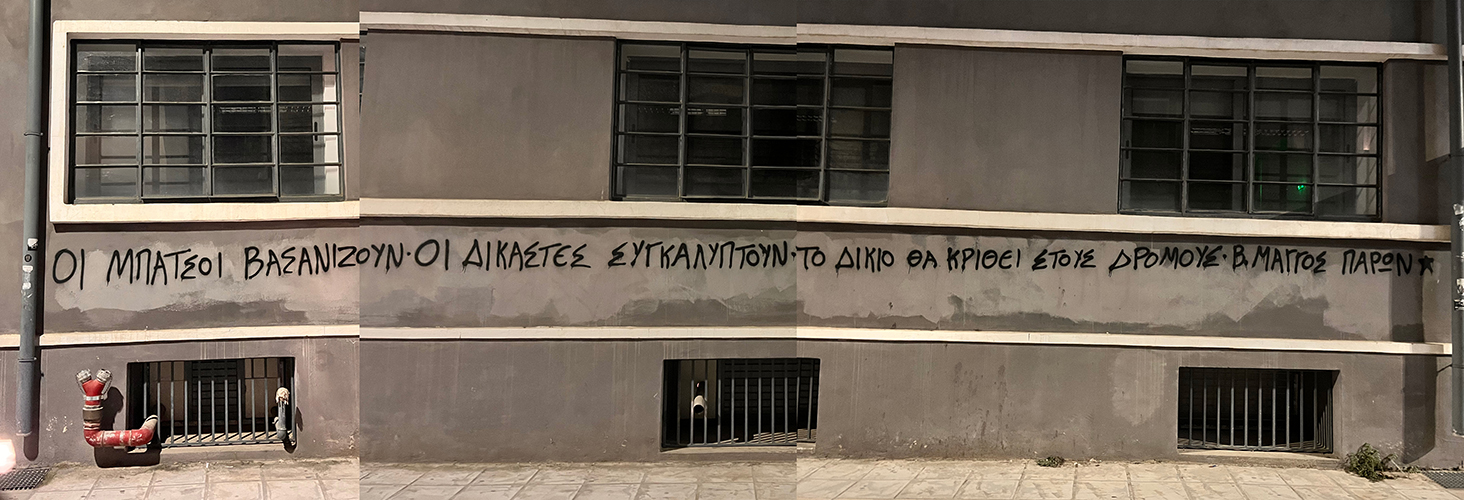 ΟΙ ΜΠΑΤΣΟΙ ΒΑΣΑΝΙΖΟΥΝ·ΟΙ ΔΙΚΑΣΤΕΣ ΣΥΓΚΑΛΥΠΤΟΥΝ·ΤΟ ΔΙΚΙΟ ΘΑ ΚΡΙΘΕΙ ΣΤΟΥΣ ΔΡΟΜΟΥΣ·Β.ΜΑΓΓΟΣ ΠΑΡΩΝ★